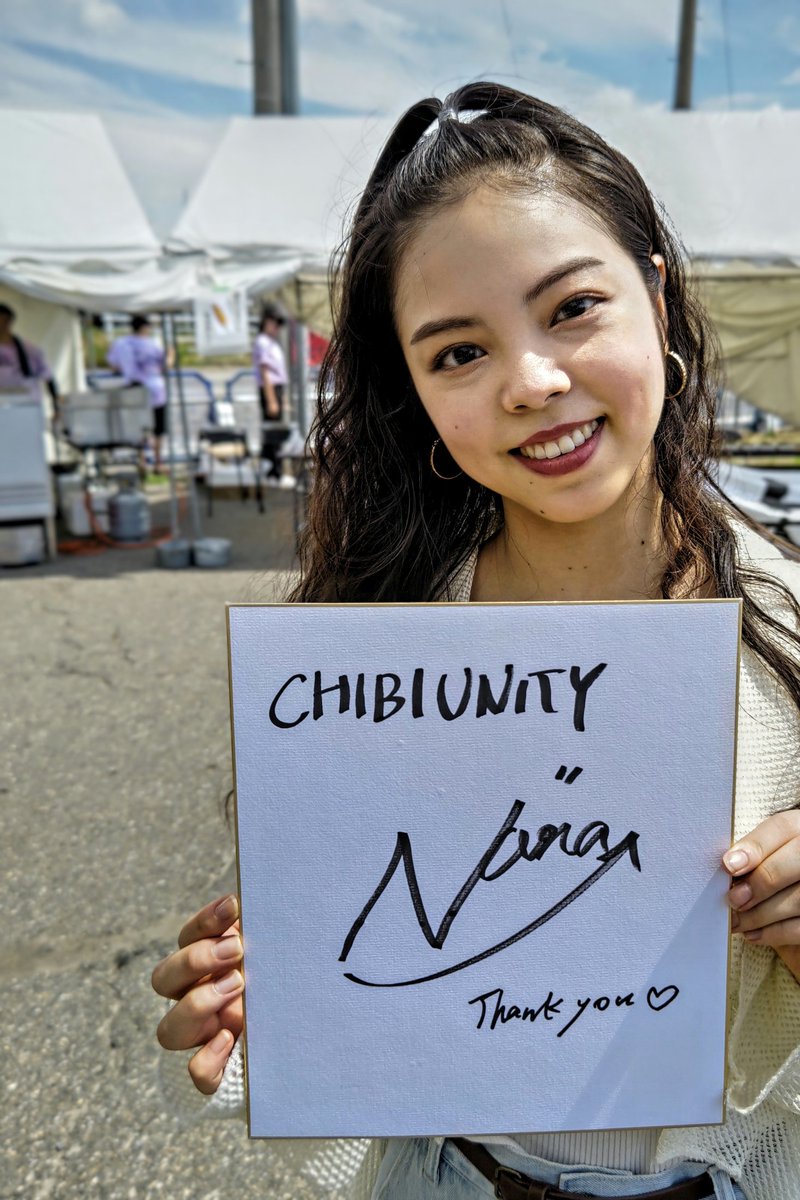 CHIBIUNITY
Nana
Thank you ♡